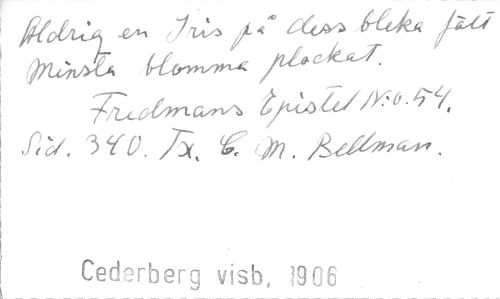 Aldrig en Iris på dess bleka fält
Minsta blomma plockat.
Fredmans Epistel N:o. 54.
Sid. 340. Tx. C. M. Bellman.
Cederberg visb, 1906